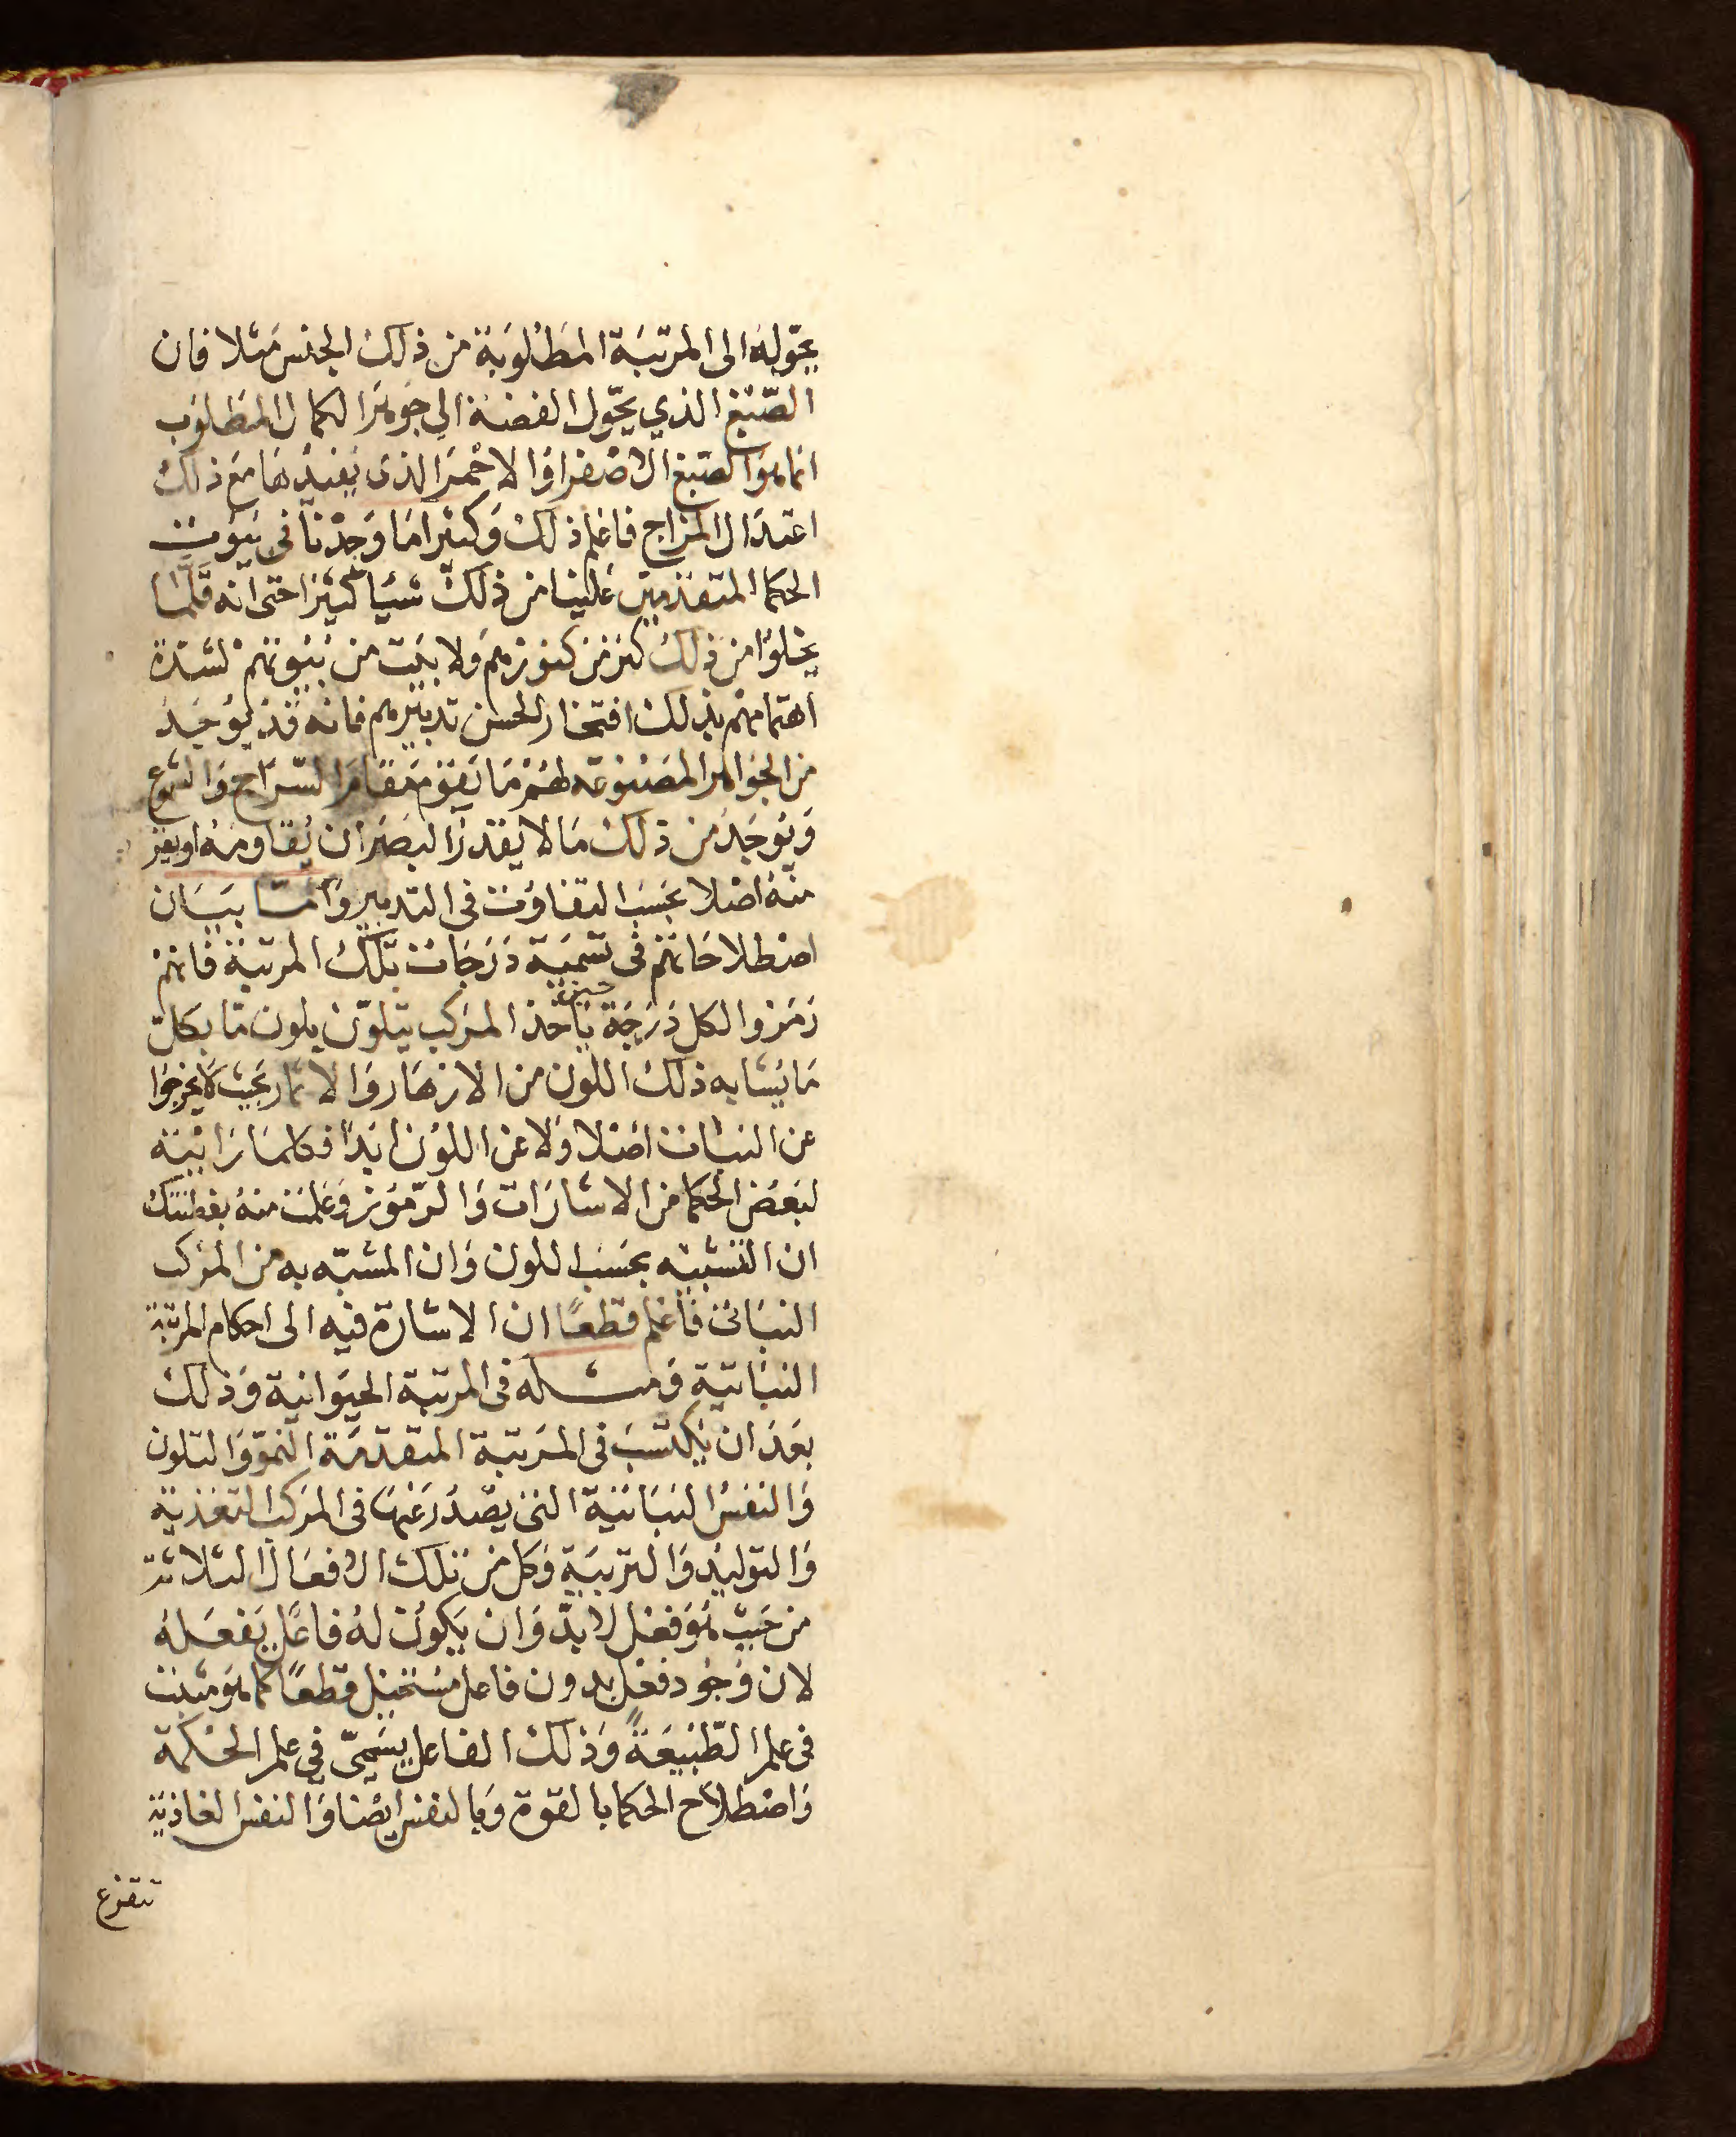 يحوله الى المرتبة المطلوبة من ذلك الجنس مثلا فان
الصّبغ الذي يحوّل الفضة الي جوهر الكمال المطلوب
انما هو الصبغ الاصفر او الاحمر الذى يفيدها مع ذلك
اعتدال المزاج فاعلم ذلك وكثيرا ما وجدنا في بيوت
الحكما المتقدمين علينا من ذلك شيا كثيرا حتى انه قلّما
يخلوا من ذلك كنز من كنوزهم ولا بيت من بيوتهم لشدة
اهتمامهم بذلك افتخارا لحسن تدبيرهم فانه قد يوجد
من الجواهر المصنوعة لهم ما يقوم مقام السّراج والشموع
ويوجد من ذلك ما لا يقدر البصر ان يقاومه او يفر
منه اصلا بحسب التفاوت في التدبير واما بيان
اصطلاحاتهم في تسمية درجات تلك المرتبة فانهم
رمزوا لكل درجة يأخذ المركب يتلوّن بلون ما بكل
ما يشابه ذلك اللون من الازهار والاثمار بحيث لا يخرجوا
عن النبات اصلا ولا عن اللون ابدا فكلما رايته
لبعض الحكما من الاشارات والرّموز وعلمت منه بفطنتك
ان التشبيه بحسب اللون وان المشبّه به من المركب
النباتى فاعلم قطعًا ان الاشارة فيه الى احكام المرتبة
النباتية ومثله في المرتبة الحيوانية وذلك
بعد ان يكتسب في المرتبة المتقدمة النموّ والتلون
والنفس النباتية التى يصدر عنها في المركب التغذية
والتوليد والتربية وكل من تلك الافعال الثلاثة
من حيث هو فعل لا بدّ وان يكون له فاعل يفعله
لان وجود فعل بدون فاعل مستحيل قطعًا كما هو مثبت
في علم الطّبيعة وذلك الفاعل يسمىّ في علم الحكمة
واصطلاح الحكما بالقوة وبالنفس ايضا والنفس الغاذية
تتفرع